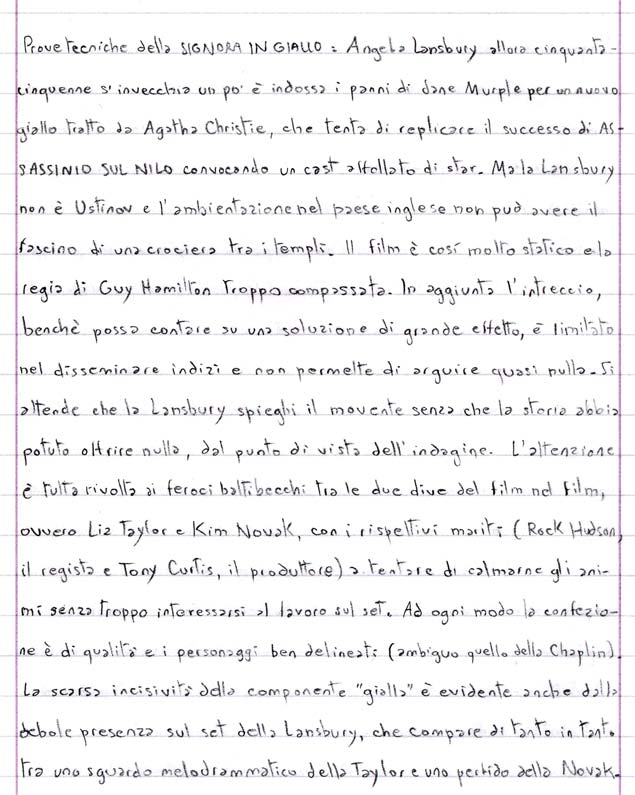 Prove tecniche della SIGNORA IN GIALLO: Angela Lansbury allora cinquanta-
cinquenne s'invecchia un po' e indossa i panni di Jane Murple per un nuovo
giallo tratto da Agatha Christie, che tenta di replicare il successo di AS-
SASSINIO SUL NILO convocando un cast affollato di star. Ma la Lansbury
non è Ustinov e l'ambientazione nel paese inglese non può avere il
fascino di una crociera tra i templi. Il film è così molto statico e la
regia di Guy Hamilton troppo compassata. In aggiunta l'intreccio,
benchè possa contare su una soluzione di grande effetto, è limitato
nel disseminare indizi e non permette di arguire quasi nulla. Si
attende che la Lansbury spieghi il movente senza che la storia abbia
potuto offrire nulla, dal punto di vista dell'indagine. L'attenzione
è tutta rivolta ai feroci battibecchi tra le due dive del film nel film,
ovvero Liz Taylor e Kim Novak, con i rispettivi mariti (Rock Hudson,
il regista e Tony Curtis, il produttore) a tentare di calmarne gli ani-
mi senza troppo interessarsi al lavoro sul set. Ad ogni modo la confezio-
ne è di qualità e i personaggi ben delineati (ambiguo quello della Chaplin).
La scarsa incisività della componente "gialla" è evidente anche dalla
debole presenza sul set della Lansbury, che compare di tanto in tanto
tra uno sguardo melodrammatico della Taylor e uno perfido della Novak.